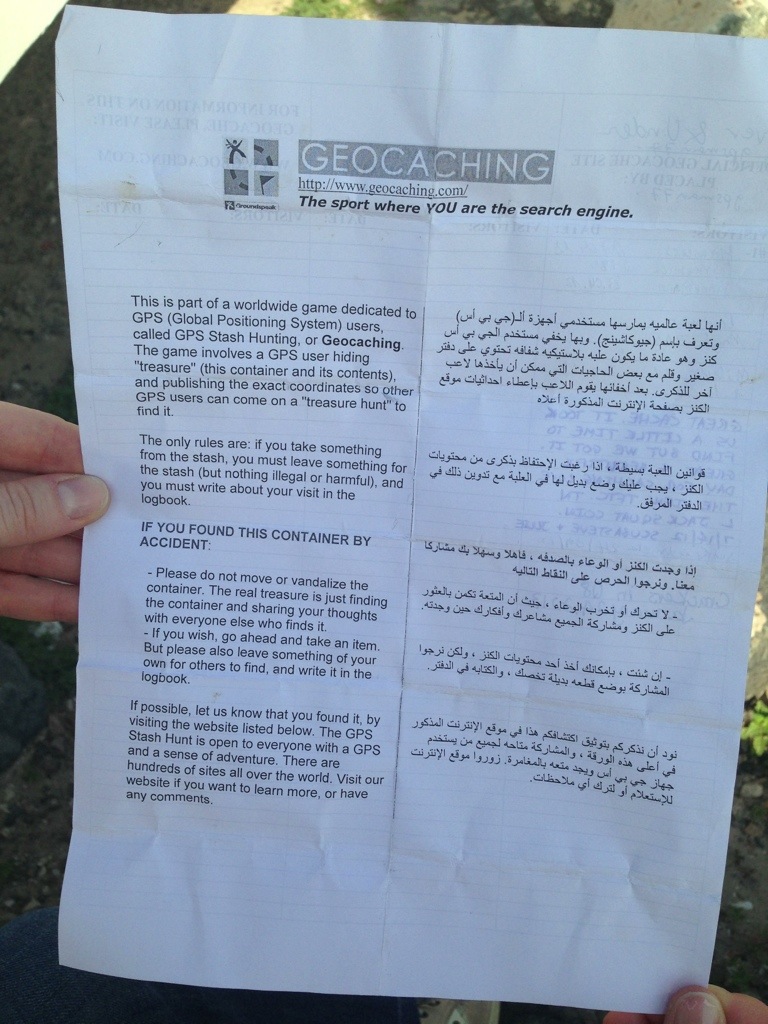 GEOCACHING
http://www.geocaching.com/
Groundspeak
The sport where YOU are the search engine.
This is part of a worldwide game dedicated to
GPS (Global Positioning System) users,
called GPS Stash Hunting, or Geocaching.
The game involves a GPS user hiding
"treasure" (this container and its contents),
and publishing the exact coordinates so other
GPS users can come on a "treasure hunt" to
find it.
The only rules are: if you take something
from the stash, you must leave something for
the stash (but nothing illegal or harmful), and
you must write about your visit in the
logbook.
IF YOU FOUND THIS CONTAINER BY
ACCIDENT:
- Please do not move or vandalize the
container. The real treasure is just finding
the container and sharing your thoughts
with everyone else who finds it.
- If you wish, go ahead and take an item.
But please also leave something of your
own for others to find, and write it in the
logbook.
If possible, let us know that you found it, by
visiting the website listed below. The GPS
Stash Hunt is open to everyone with a GPS
and a sense of adventure. There are
hundreds of sites all over the world. Visit our
website if you want to learn more, or have
any comments.
أنها لعبة عالميه يمارسها مستخدمي أجهزة ألـ(جي بي أس)
وتعرف بإسم (جيوكاشينج). وبها يخفي مستخدم الجي بي أس
كنز وهو عادة ما يكون علبه بلاستيكيه شفافه تحتوي على دفتر
صغير وقلم مع بعض الحاجيات التي ممكن أن يأخذها لاعب
آخر للذكرى. بعد أخفائها يقوم اللاعب بإعطاء احداثيات موقع
الكنز بصفحة الإنترنت المذكورة أعلاه
قوانين اللعبة بسيطة ، اذا رغبت الإحتفاظ بذكرى من محتويات
الكنز ، يجب عليك وضع بديل لها في العلبة مع تدوين ذلك في
الدفتر المرفق.
إذا وجدت الكنز أو الوعاء بالصدفه ، فاهلا وسهلا بك مشاركا
معنا. ونرجوا الحرص على النقاط التاليه
- لا تحرك أو تخرب الوعاء ، حيث أن المتعة تكمن بالعثور
على الكنز ومشاركة الجميع مشاعرك وأفكارك حين وجدته.
- إن شئت ، بإمكانك أخذ أحد محتويات الكنز ، ولكن نرجوا
المشاركة بوضع قطعه بديلة تخصك ، والكتابه في الدفتر.
نود أن نذكركم بتوثيق اكتشافكم هذا في موقع الإنترنت المذكور
في أعلى هذه الورقة ، والمشاركة متاحه لجميع من يستخدم
جهاز جي بي أس ويجد متعه بالمغامرة. زوروا موقع الإنترنت
للإستعلام أو لترك أي ملاحظات.